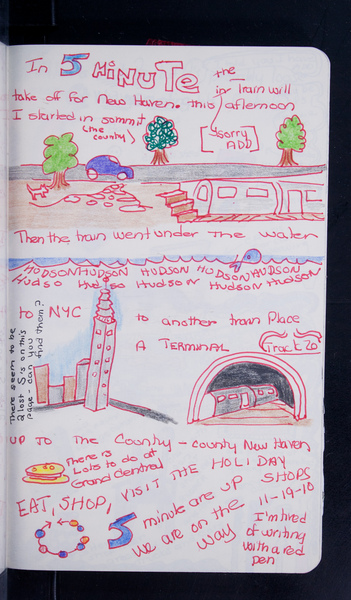 In 5 MINUTE the
in Train will
take off for New Haven. this afternoon
I started in sommit
(the country)
[sorry ADD]
Then the train went under The water
HUDSON HUDSON HUDSON HUDSON HUDSON
Hudso Hudso Hudson Hudson Hudson
to NYC to another train Place
A TERMINAL Track 20
There seem to be
2 lost S's on this
page - can you find them?
UP TO The Country - county New Haven
There is
Lots to do at
Grand Central
EAT, SHOP, VISIT THE HOLIDAY SHOPS
5 minute are up
we are on the
way
11-19-10
I'm tired
of writing
with a red
pen